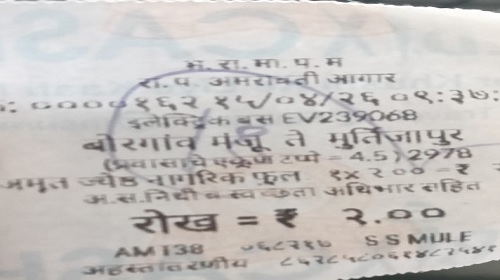 म.रा.मा.प.म
रा.प. अमरावती आगार
: ००००१६२ १५/०४/२६ ०९:३७:
इलेक्ट्रिक बस EV239068
बोरगांव मंजू ते मुर्तिजापुर
(प्रवासाचे एकूण टप्पे = 4.5) 2978
अमृत ज्येष्ठ नागरिक फुल १x२००=₹
अ.स.निधी व स्वच्छता अधिभार सहित
रोख = ₹ २.००
AMT38 S S MULE
अहस्तांतरणीय